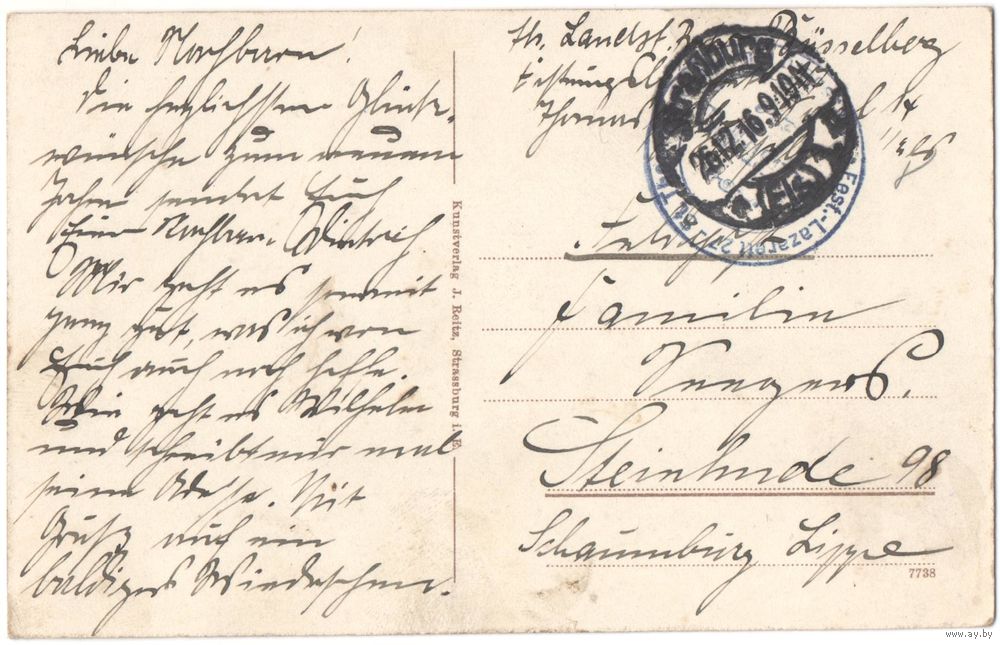 Liebe Nachbarn!
Die herzlichsten Glück-
wünsche zum neuen
Jahre sendet Euch
Euer Nachbar. Dietrich
Mir geht es soweit
ganz gut, was ich von
Euch auch noch hoffe.
Wie geht es Wilhelm
und schreibt mir mal
seine Adresse. Mit
Gruß auf ein
baldiges Wiedersehen.
Kunstverlag J. Reitz, Strassburg i. E.
Landst. Düsselberg
Strassburg
26.12.16.9-10V.
* 1 (Els)
Fest.-Lazarett
Feldpost
Familie
Seegers.
Steinhude 98
Schaumburg Lippe
7738
www.ay.by